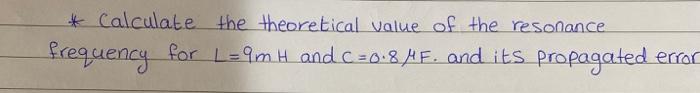 * Calculate the theoretical value of the resonance
frequency for L=9mH and C=0.8μF. and its propagated error